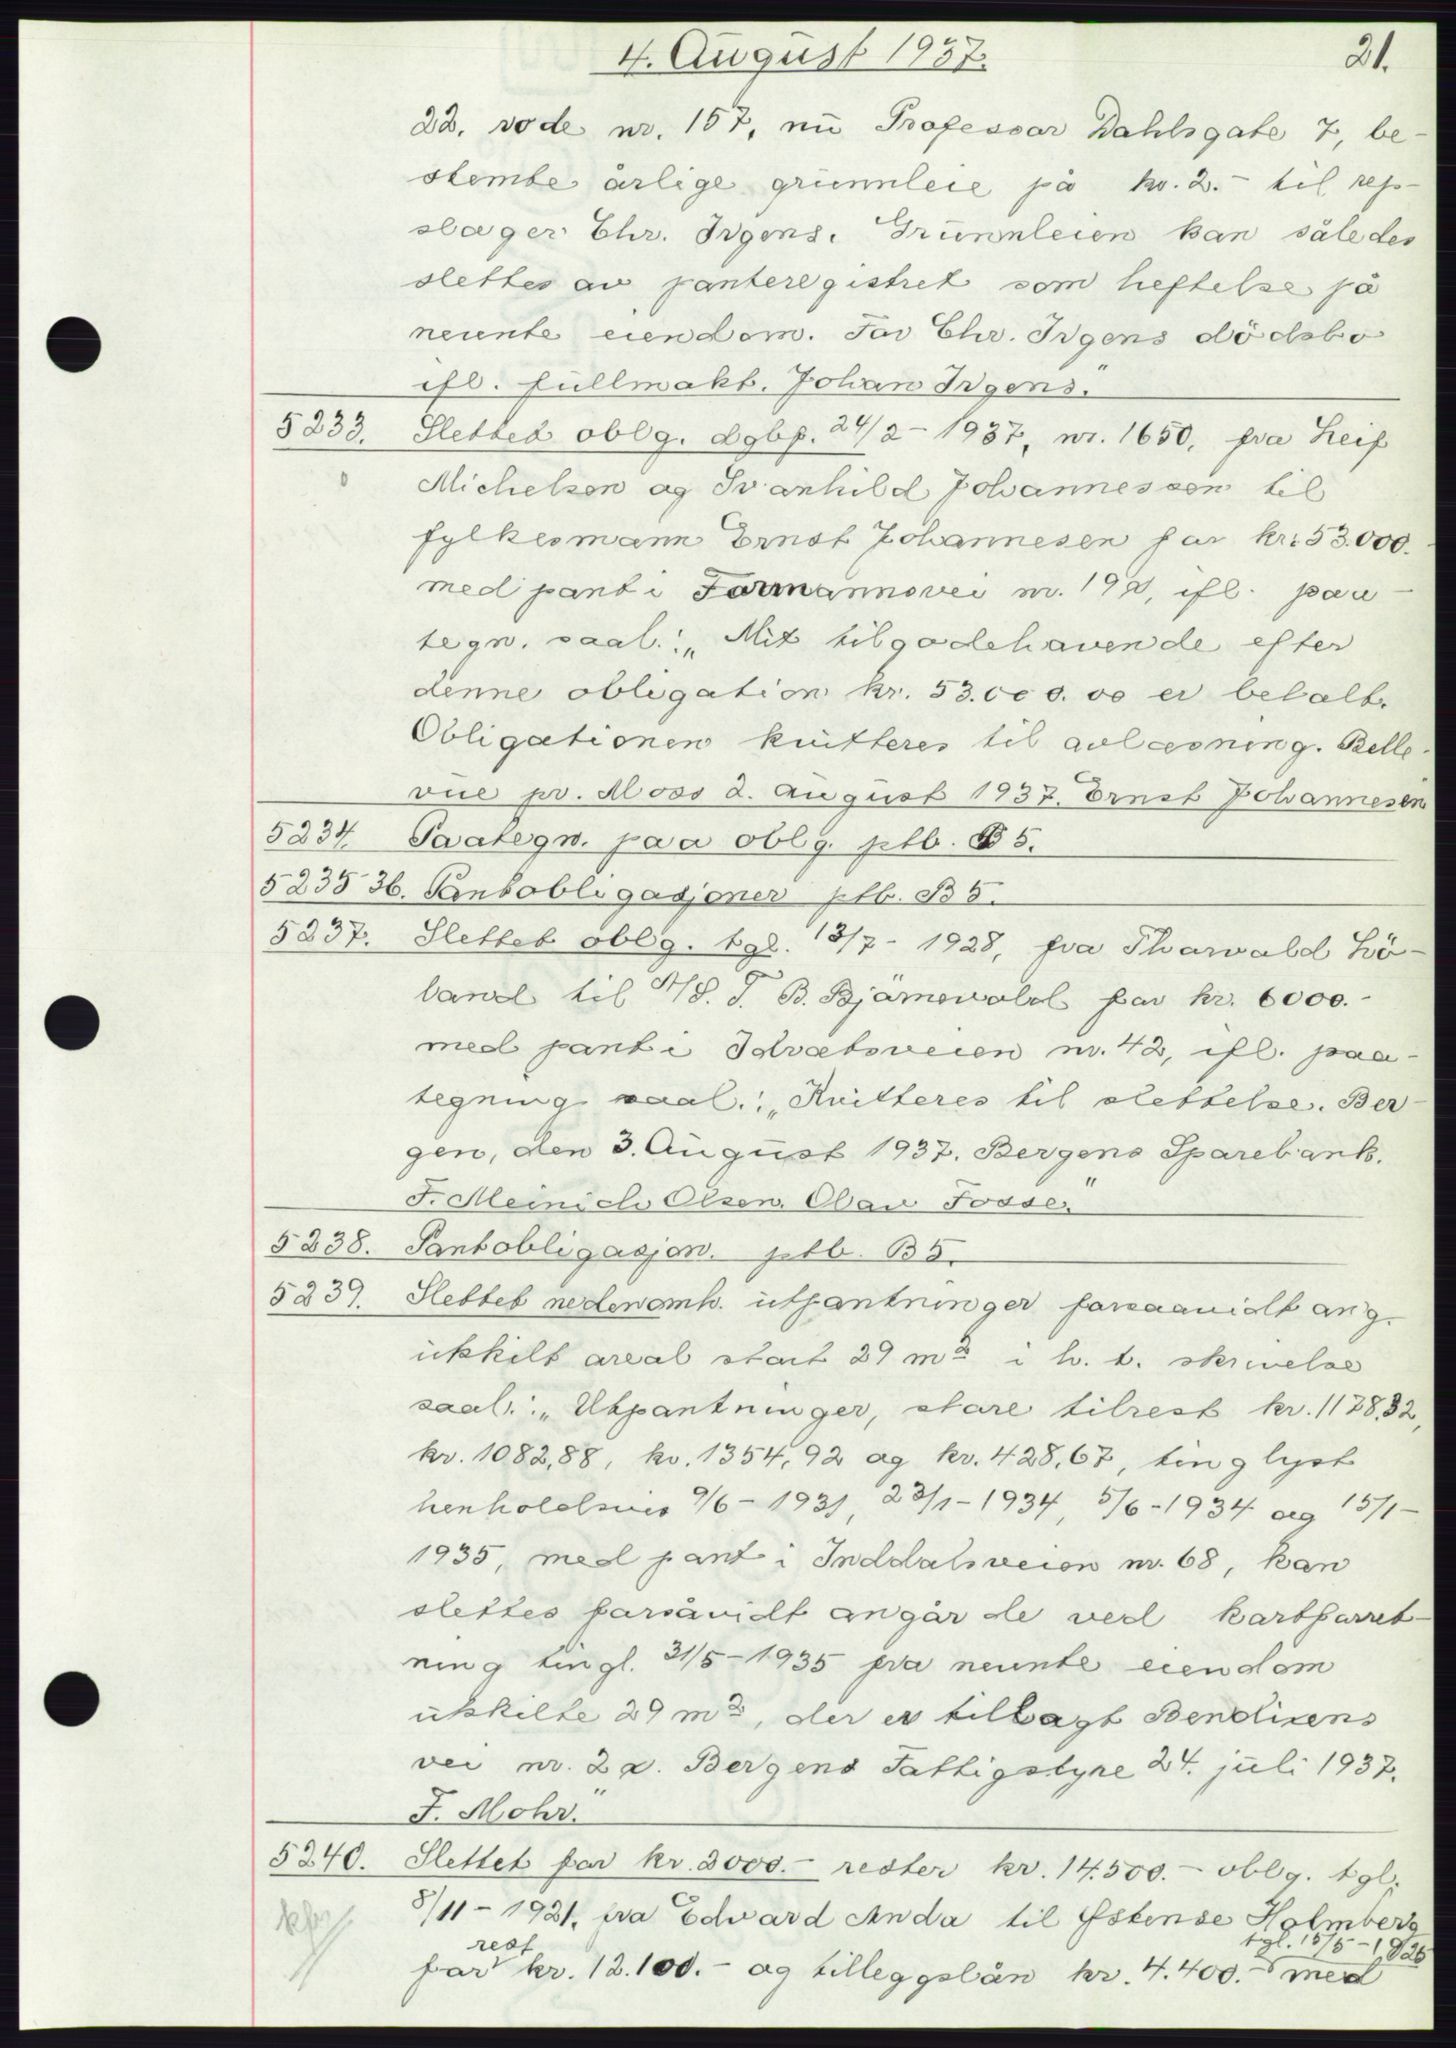 4. August 1937.
21.
22. rode nr. 157, nu Professor Dahlsgate 7, be-
stemte årlige grunnleie på kr. 2.- til rep-
slager Chr. Irgens. Grunnleien kan således
slettes av panteregistret som heftelse på
nevnte eiendom. For Chr. Irgens dödsbo
ifl. fullmakt. Johan Irgens."
5233. Slettet oblg. dgbf. 24/2 - 1937, nr. 1650, fra Leif
Michelsen og Svanhild Johannessen til
fylkesmann Ernst Johannesen for kr. 53.000.
med pant i Formannsvei nr. 19, ifl. paa-
tegn. saal.: „Mit tilgodehavende efter
denne obligation kr. 53.000.00 er betalt.
Obligationen kvitteres til avlæsning. Belle-
vue pr. Moss 2. august 1937. Ernst Johannesen
5234. Paategn. paa oblg. ptb. B 5.
5235 36. Pantobligasjoner ptb. B 5.
5237. Slettet oblg. tgl. 13/7 - 1928, fra Tharvald Lö-
land til A/S. T. B. Bjärnevold for kr. 6000.-
med pant i Idrætsveien nr. 42, ifl. paa-
tegning saal.: „Kvitteres til slettelse. Ber-
gen, den 3. August 1937. Bergens Sparebank.
F. Meinich Olsen. Olav Fosse."
5238. Pantobligasjon. ptb. B 5.
5239. Slettet nedenomh. utpantninger forsaavidt ang.
utskilt areal stort 29 m² i h. t. skrivelse
saal.: „Utpantninger, store tilrest kr. 1178,32,
kr. 1082,88, kr. 1354,92 og kr. 428,67, tinglyst
henholdsvis 9/6 - 1931, 23/1 - 1934, 5/6 - 1934 og 15/1 -
1935, med pant i Inddalsveien nr. 68, kan
slettes forsåvidt angår de ved kartforret-
ning tingl. 31/5 - 1935 fra nevnte eiendom
utskilte 29 m², der er tillagt Bendixens
vei nr. 2a. Bergens Fattigstyre 24. juli 1937.
F. Mohr."
5240. Slettet for kr. 2000.- rester kr. 14.500.- oblg. tgl.
8/11 - 1921, fra Edvard Anda til Østense Holmberg
rest tgl. 15/5 - 1925
for kr. 12.100.- og tilleggslån kr. 4.400.- med